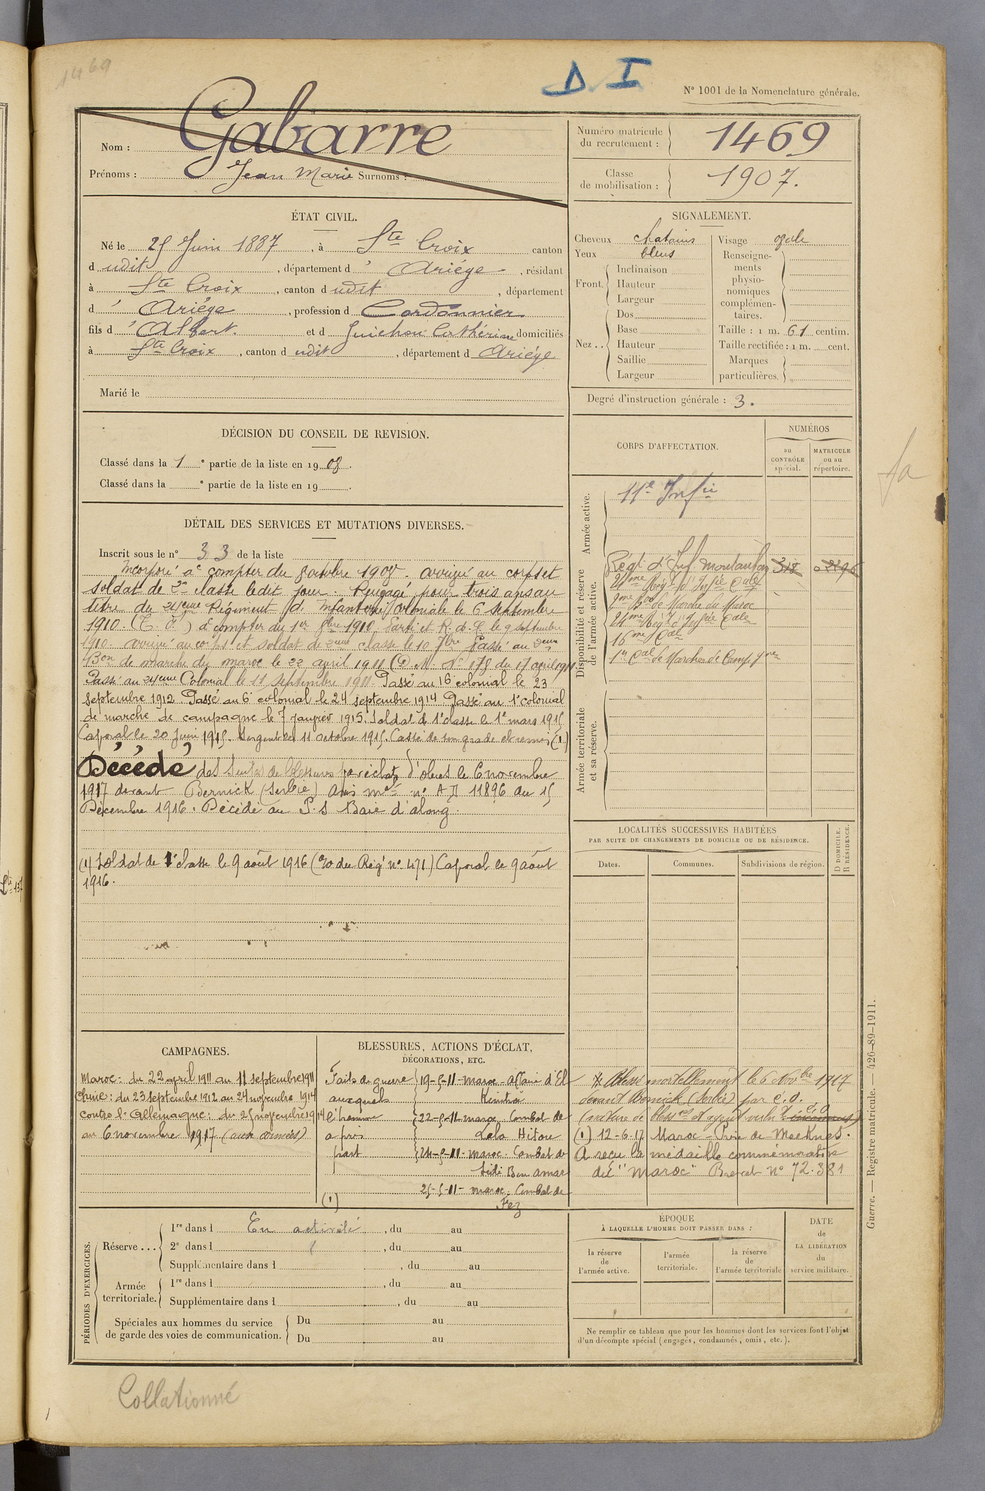 1469
D. I
N° 1001 de la Nomenclature générale.
Nom : Gabarre
Prénoms : Jean Marie Surnoms :
Numéro matricule du recrutement : 1469
Classe de mobilisation : 1907.
ÉTAT CIVIL.
Né le 25 Juin 1887, à Ste Croix canton
d udit, département d' Ariège, résidant
à Ste Croix, canton d udit, département
d' Ariège, profession d Cordonnier
fils d' Albert et d Guichou Cathérine domiciliés
à Ste Croix, canton d udit, département d' Ariège
Marié le
SIGNALEMENT.
Cheveux chatains
Yeux bleus
Front. Inclinaison
Hauteur
Largeur
Nez .. Dos
Base
Hauteur
Saillie
Largeur
Visage ovale
Renseignements physionomiques complémentaires.
Taille : 1 m. 61 centim.
Taille rectifiée : 1 m. cent.
Marques particulières.
Degré d'instruction générale : 3.
DÉCISION DU CONSEIL DE REVISION.
Classé dans la 1re partie de la liste en 1908.
Classé dans la e partie de la liste en 19
DÉTAIL DES SERVICES ET MUTATIONS DIVERSES.
Inscrit sous le n° 33 de la liste
Incorporé à compter du 8 octobre 1908. arrivé au corps et
soldat de 2e classe le dit jour. Rengagé pour trois ans au
titre du 24eme Régiment d'Infanterie Coloniale le 6 septembre
1910. à compter du 1er 8bre 1910. le 9 septembre
1910 arrivé au corps et soldat de 2eme classe le 10 7bre Passé au 2eme
Bon de marche du maroc le 22 avril 1911 (D. M. N° 178 du 17 avril 1911
Passé au 24eme Colonial le 11 septembre 1911. Passé au 16 colonial le 23
septembre 1912. Passé au 6 colonial le 24 septembre 1914 Passé au 1 colonial
de marche de campagne le 7 janvier 1915. Soldat de 1 classe le 1e mars 1915
Caporal le 20 juin 1915. Sergent le 11 octobre 1915. Cassé de son grade et remis (1)
Décédé des suites de blessures par éclats d'obus le 6 novembre
1917 devant Bernick (Serbie) Avis mel n° A D 11896 du 15
Décembre 1916. Décidé au P.S Baie d'along
(1) Soldat de 2 classe le 9 août 1916 (Co du Reg n° 471.) Caporal le 9 août
1916.
CORPS D'AFFECTATION.
NUMÉROS
au CONTRÔLE spécial.
MATRICULE ou au répertoire.
Armée active.
11e Infie
Disponibilité et réserve de l'armée active.
Régt d'Inf Montauban 318
24eme Régt d'Infie Cale
2eme Bon de Marche du Maroc
24eme Régt d'Infie Cale
16eme Cal
Armée territoriale et sa réserve.
LOCALITÉS SUCCESSIVES HABITÉES
PAR SUITE DE CHANGEMENTS DE DOMICILE OU DE RÉSIDENCE.
Dates.
Communes.
Subdivisions de région.
D DOMICILE.
R RÉSIDENCE.
CAMPAGNES.
Maroc : du 22 avril 1911 au 11 septembre 1911
Chine : du 23 septembre 1912 au 24 novembre 1914
contre l'Allemagne : du 25 novembre 1914
au 6 novembre 1917 (aux armées)
BLESSURES, ACTIONS D'ÉCLAT, DÉCORATIONS, ETC.
Faits de guerre auxquels l'homme a pris part
19-5-11- maroc - affaire d'El Kunitra
22-5-11 maroc. Combat de Lala Hitou
24-5-11- maroc. Combat de Sidi Ben amar
25-5-11- maroc. Combat de Fez
(1)
Blessé mortellement le 6 Novbre 1917
devant Bernick (Serbie) par e. o.
(1) 12-6-17 Maroc - Prise de Mecknès.
A reçu la médaille commémorative
du "maroc" Brevet n° 72.381
PÉRIODES D'EXERCICES.
Réserve ... 1re dans l En activité, du au
2e dans l , du au
Supplémentaire dans l , du au
Armée territoriale. 1re dans l , du au
Supplémentaire dans l , du au
Spéciales aux hommes du service de garde des voies de communication. Du au
Du au
ÉPOQUE
À LAQUELLE L'HOMME DOIT PASSER DANS :
la réserve de l'armée active.
l'armée territoriale.
la réserve de l'armée territoriale
DATE DE LA LIBÉRATION du service militaire.
Ne remplir ce tableau que pour les hommes dont les services font l'objet
d'un décompte spécial (engagés, condamnés, omis, etc.).
Guerre. — Registre matricule. — 426-89-1911.
Collationné